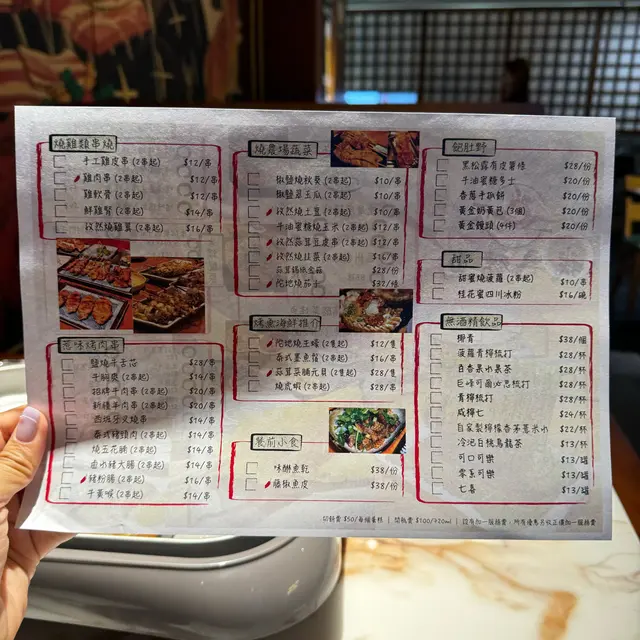 燒雞類串燒
手工雞皮串 (2串起) $12/串
雞肉串 (2串起) $12/串
雞軟骨 (2串起) $12/串
鮮雞腎 (2串起) $14/串
孜然燒雞茸 (2串起) $16/串
惹味烤肉串
鹽燒牛舌芯 $28/串
牛胸爽 (2串起) $14/串
招牌牛肉串 (2串起) $20/串
新疆羊肉串 (2串起) $20/串
西班牙火燒串 $14/串
泰式豬頸肉 (2串起) $14/串
燒五花腩 (2串起) $14/串
鹵水豬大腸 (2串起) $14/串
豬粉腸 (2串起) $16/串
牛黃喉 (2串起) $14/串
燒農場蔬菜
椒鹽燒秋葵 (2串起) $10/串
椒鹽翠玉瓜 (2串起) $10/串
孜然燒土豆 (2串起) $10/串
牛油蜜糖燒玉米 (2串起) $12/串
孜然蒜茸豆皮串 (2串起) $12/串
孜然燒韭菜 (2串起) $16/串
蒜茸錫紙金菇 $28/份
陀地燒茄子 $32/條
烤魚海鮮推介
陀地燒生蠔 (2隻起) $12/隻
泰式墨魚鬚 (2串起) $16/串
蒜茸菜脯元貝 (2隻起) $28/隻
燒虎蝦 (2串起) $28/串
餐前小食
味醂魚乾 $38/份
藤椒魚皮 $38/份
飽肚野
黑松露有皮薯條 $28/份
牛油蜜糖多士 $20/份
香蔥手抓餅 $20/份
黃金奶黃包 (3個) $20/份
黃金饅頭 (4件) $20/份
甜品
甜蜜燒菠蘿 (2串起) $10/串
桂花蜜四川冰粉 $16/碗
無酒精飲品
椰青 $38/個
菠蘿青檸梳打 $28/杯
百香果水果茶 $28/杯
巨峰可爾必思梳打 $28/杯
青檸梳打 $28/杯
咸檸七 $24/杯
自家製檸檬香茅薏米水 $22/杯
冷泡白桃烏龍茶 $13/杯
可口可樂 $13/罐
零系可樂 $13/罐
七喜 $13/罐
切餅費 $50/每個蛋糕 | 開瓶費 $100/720ml | 設有加一服務費，所有優惠另收正價加一服務費